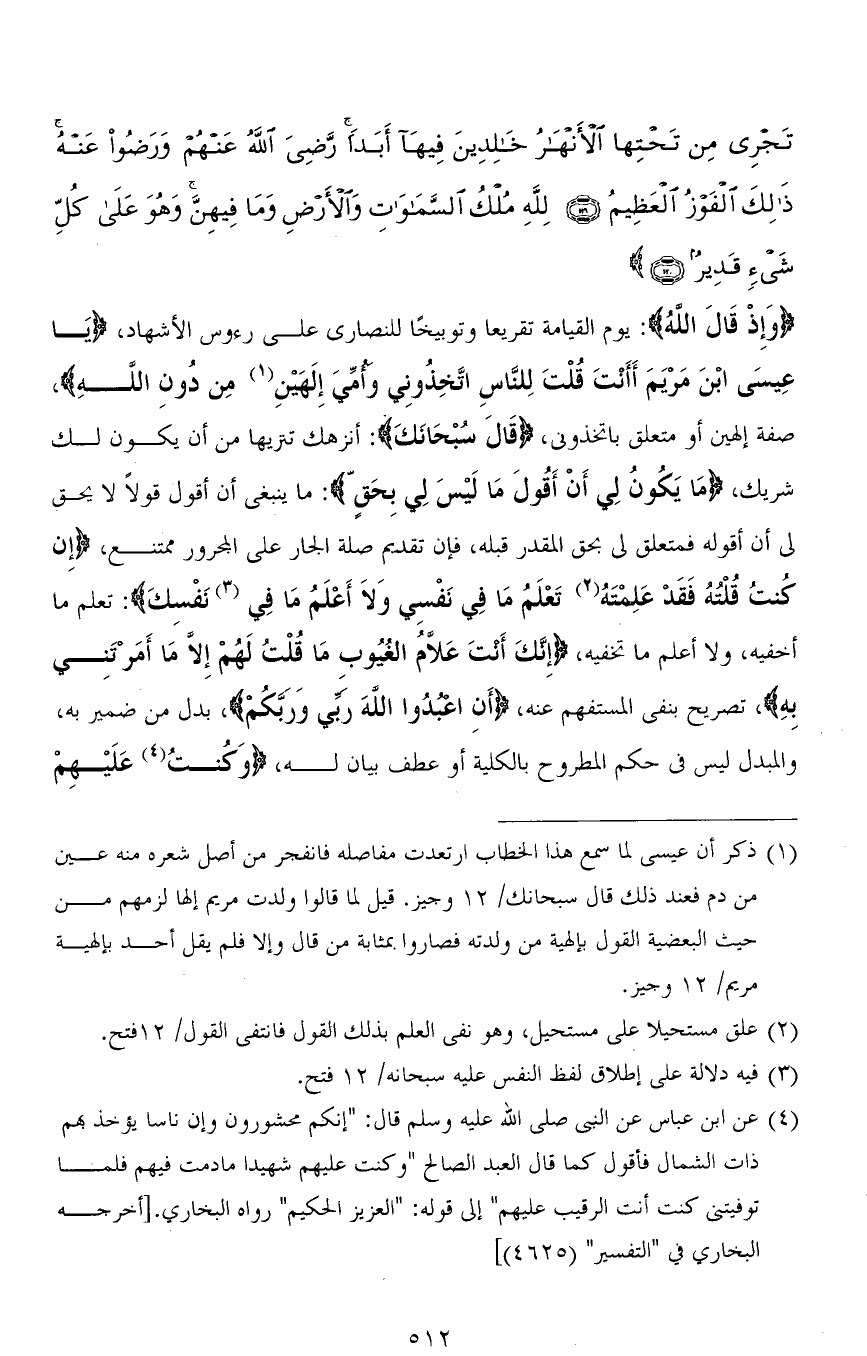 تَجْرِى مِن تَحْتِهَا ٱلْأَنْهَـٰرُ خَـٰلِدِينَ فِيهَآ أَبَدًا ۚ رَّضِىَ ٱللَّهُ عَنْهُمْ وَرَضُوا۟ عَنْهُ ۚ
ذَٰلِكَ ٱلْفَوْزُ ٱلْعَظِيمُ ﴿١١٩﴾ لِلَّهِ مُلْكُ ٱلسَّمَـٰوَٰتِ وَٱلْأَرْضِ وَمَا فِيهِنَّ ۚ وَهُوَ عَلَىٰ كُلِّ
شَىْءٍ قَدِيرٌۢ ﴿١٢٠﴾ ﴾
﴿وَإِذْ قَالَ اللَّهُ﴾: يوم القيامة تقريعا وتوبيخًا للنصارى علـــى رءوس الأشهاد، ﴿يَــا
عِيسَى ابْنَ مَرْيَمَ أَأَنْتَ قُلْتَ لِلنَّاسِ اتَّخِذُونِي وَأُمِّيَ إِلَهَيْنِ(١) مِن دُونِ اللَّــــهِ﴾،
صفة إلهين أو متعلق باتخذونى، ﴿قَالَ سُبْحَانَكَ﴾: أنزهك تنزيها من أن يكـــون لـــك
شريك، ﴿مَا يَكُونُ لِي أَنْ أَقُولَ مَا لَيْسَ لِي بِحَقٍّ﴾: ما ينبغى أن أقول قولاً لا يحــق
لى أن أقوله فمتعلق لى بحق المقدر قبله، فإن تقديم صلة الجار على المجرور ممتنـــع، ﴿إِن
كُنتُ قُلْتُهُ فَقَدْ عَلِمْتَهُ(٢) تَعْلَمُ مَا فِي نَفْسِي وَلاَ أَعْلَمُ مَا فِي (٣) نَفْسِكَ﴾: تعلم ما
أخفيه، ولا أعلم ما تخفيه، ﴿إِنَّكَ أَنْتَ عَلاَّمُ الغُيُوبِ مَا قُلْتُ لَهُمْ إِلاَّ مَا أَمَرْتَنِـــي
بِهِ﴾، تصريح بنفى المستفهم عنه، ﴿أَنِ اعْبُدُوا اللَّهَ رَبِّي وَرَبَّكُمْ﴾، بدل من ضمير به،
والمبدل ليس فى حكم المطروح بالكلية أو عطف بيان لـــــه، ﴿وَكُنــتُ(٤) عَلَيْــهِمْ
(١) ذكر أن عيسى لما سمع هذا الخطاب ارتعدت مفاصله فانفجر من أصل شعره منه عـــين
من دم فعند ذلك قال سبحانك/ ١٢ وجيز. قيل لما قالوا ولدت مريم إلها لزمهم مـــن
حيث البعضية القول بإلهية من ولدته فصاروا بمثابة من قال وإلا فلم يقل أحـــد بإلهيـــة
مريم/ ١٢ وجيز.
(٢) علق مستحيلا على مستحيل، وهو نفى العلم بذلك القول فانتفى القول/ ١٢فتح.
(٣) فيه دلالة على إطلاق لفظ النفس عليه سبحانه/ ١٢ فتح.
(٤) عن ابن عباس عن النبى صلى الله عليه وسلم قال: "إنكم محشورون وإن ناسا يؤخذ بهم
ذات الشمال فأقول كما قال العبد الصالح "وكنت عليهم شهيدا مادمت فيهم فلمـــا
توفيتنى كنت أنت الرقيب عليهم" إلى قوله: "العزيز الحكيم" رواه البخاري.[أخرجـــه
البخاري في "التفسير" (٤٦٢٥)]
٥١٢